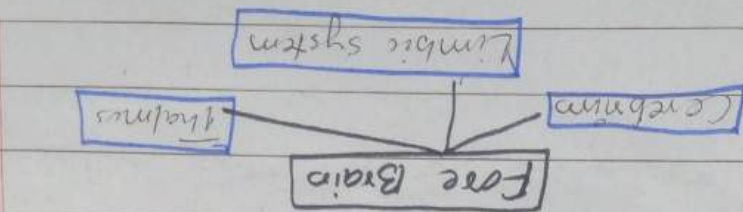 Fore Brain
Cerebrum Thalmus
Limbic System